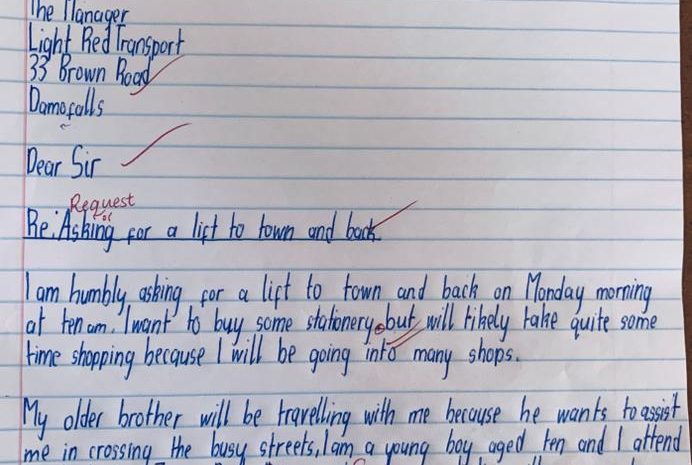 The Manager
Light Red Transport
33 Brown Road
Damofalls
Dear Sir
Request
Re: Asking for a lift to town and back
I am humbly asking for a lift to town and back on Monday morning
at ten am. I want to buy some stationery, but will likely take quite some
time shopping because I will be going into many shops.
My older brother will be travelling with me because he wants to assist
me in crossing the busy streets, I am a young boy aged ten and I attend